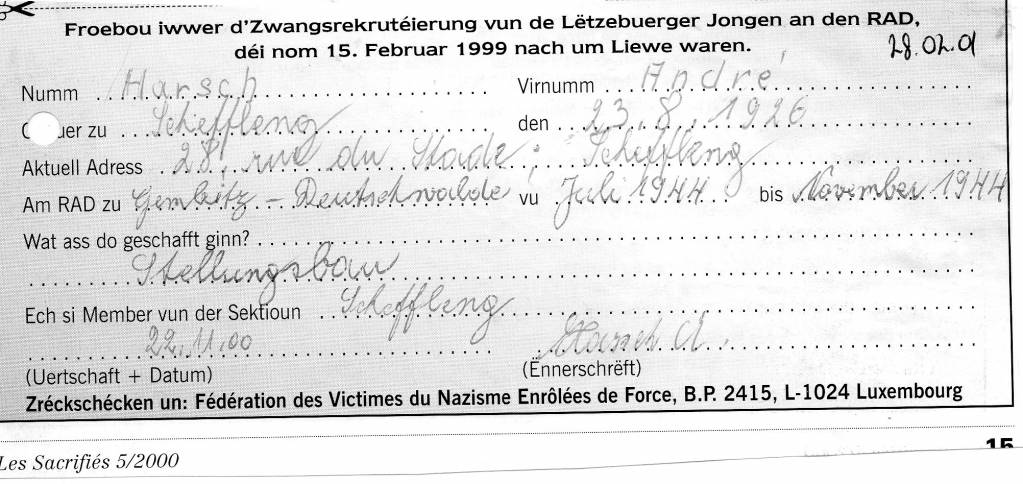 Froebou iwwer d'Zwangsrekrutéierung vun de Lëtzebuerger Jongen an den RAD,
déi nom 15. Februar 1999 nach um Liewe waren.
28.02.01
Numm Harsch Virnumm André
uer zu Scheffleng den 23.8.1926
Aktuell Adress 28, rue du Stade; Scheffleng
Am RAD zu Gembitz - Deutschwalde vu Juli 1944 bis November 1944
Wat ass do geschafft ginn?
Stellungsbau
Ech si Member vun der Sektioun Scheffleng
22.11.00 Harsch A.
(Uertschaft + Datum) (Ënnerschrëft)
Zréckschécken un: Fédération des Victimes du Nazisme Enrôlées de Force, B.P. 2415, L-1024 Luxembourg
Les Sacrifiés 5/2000 15